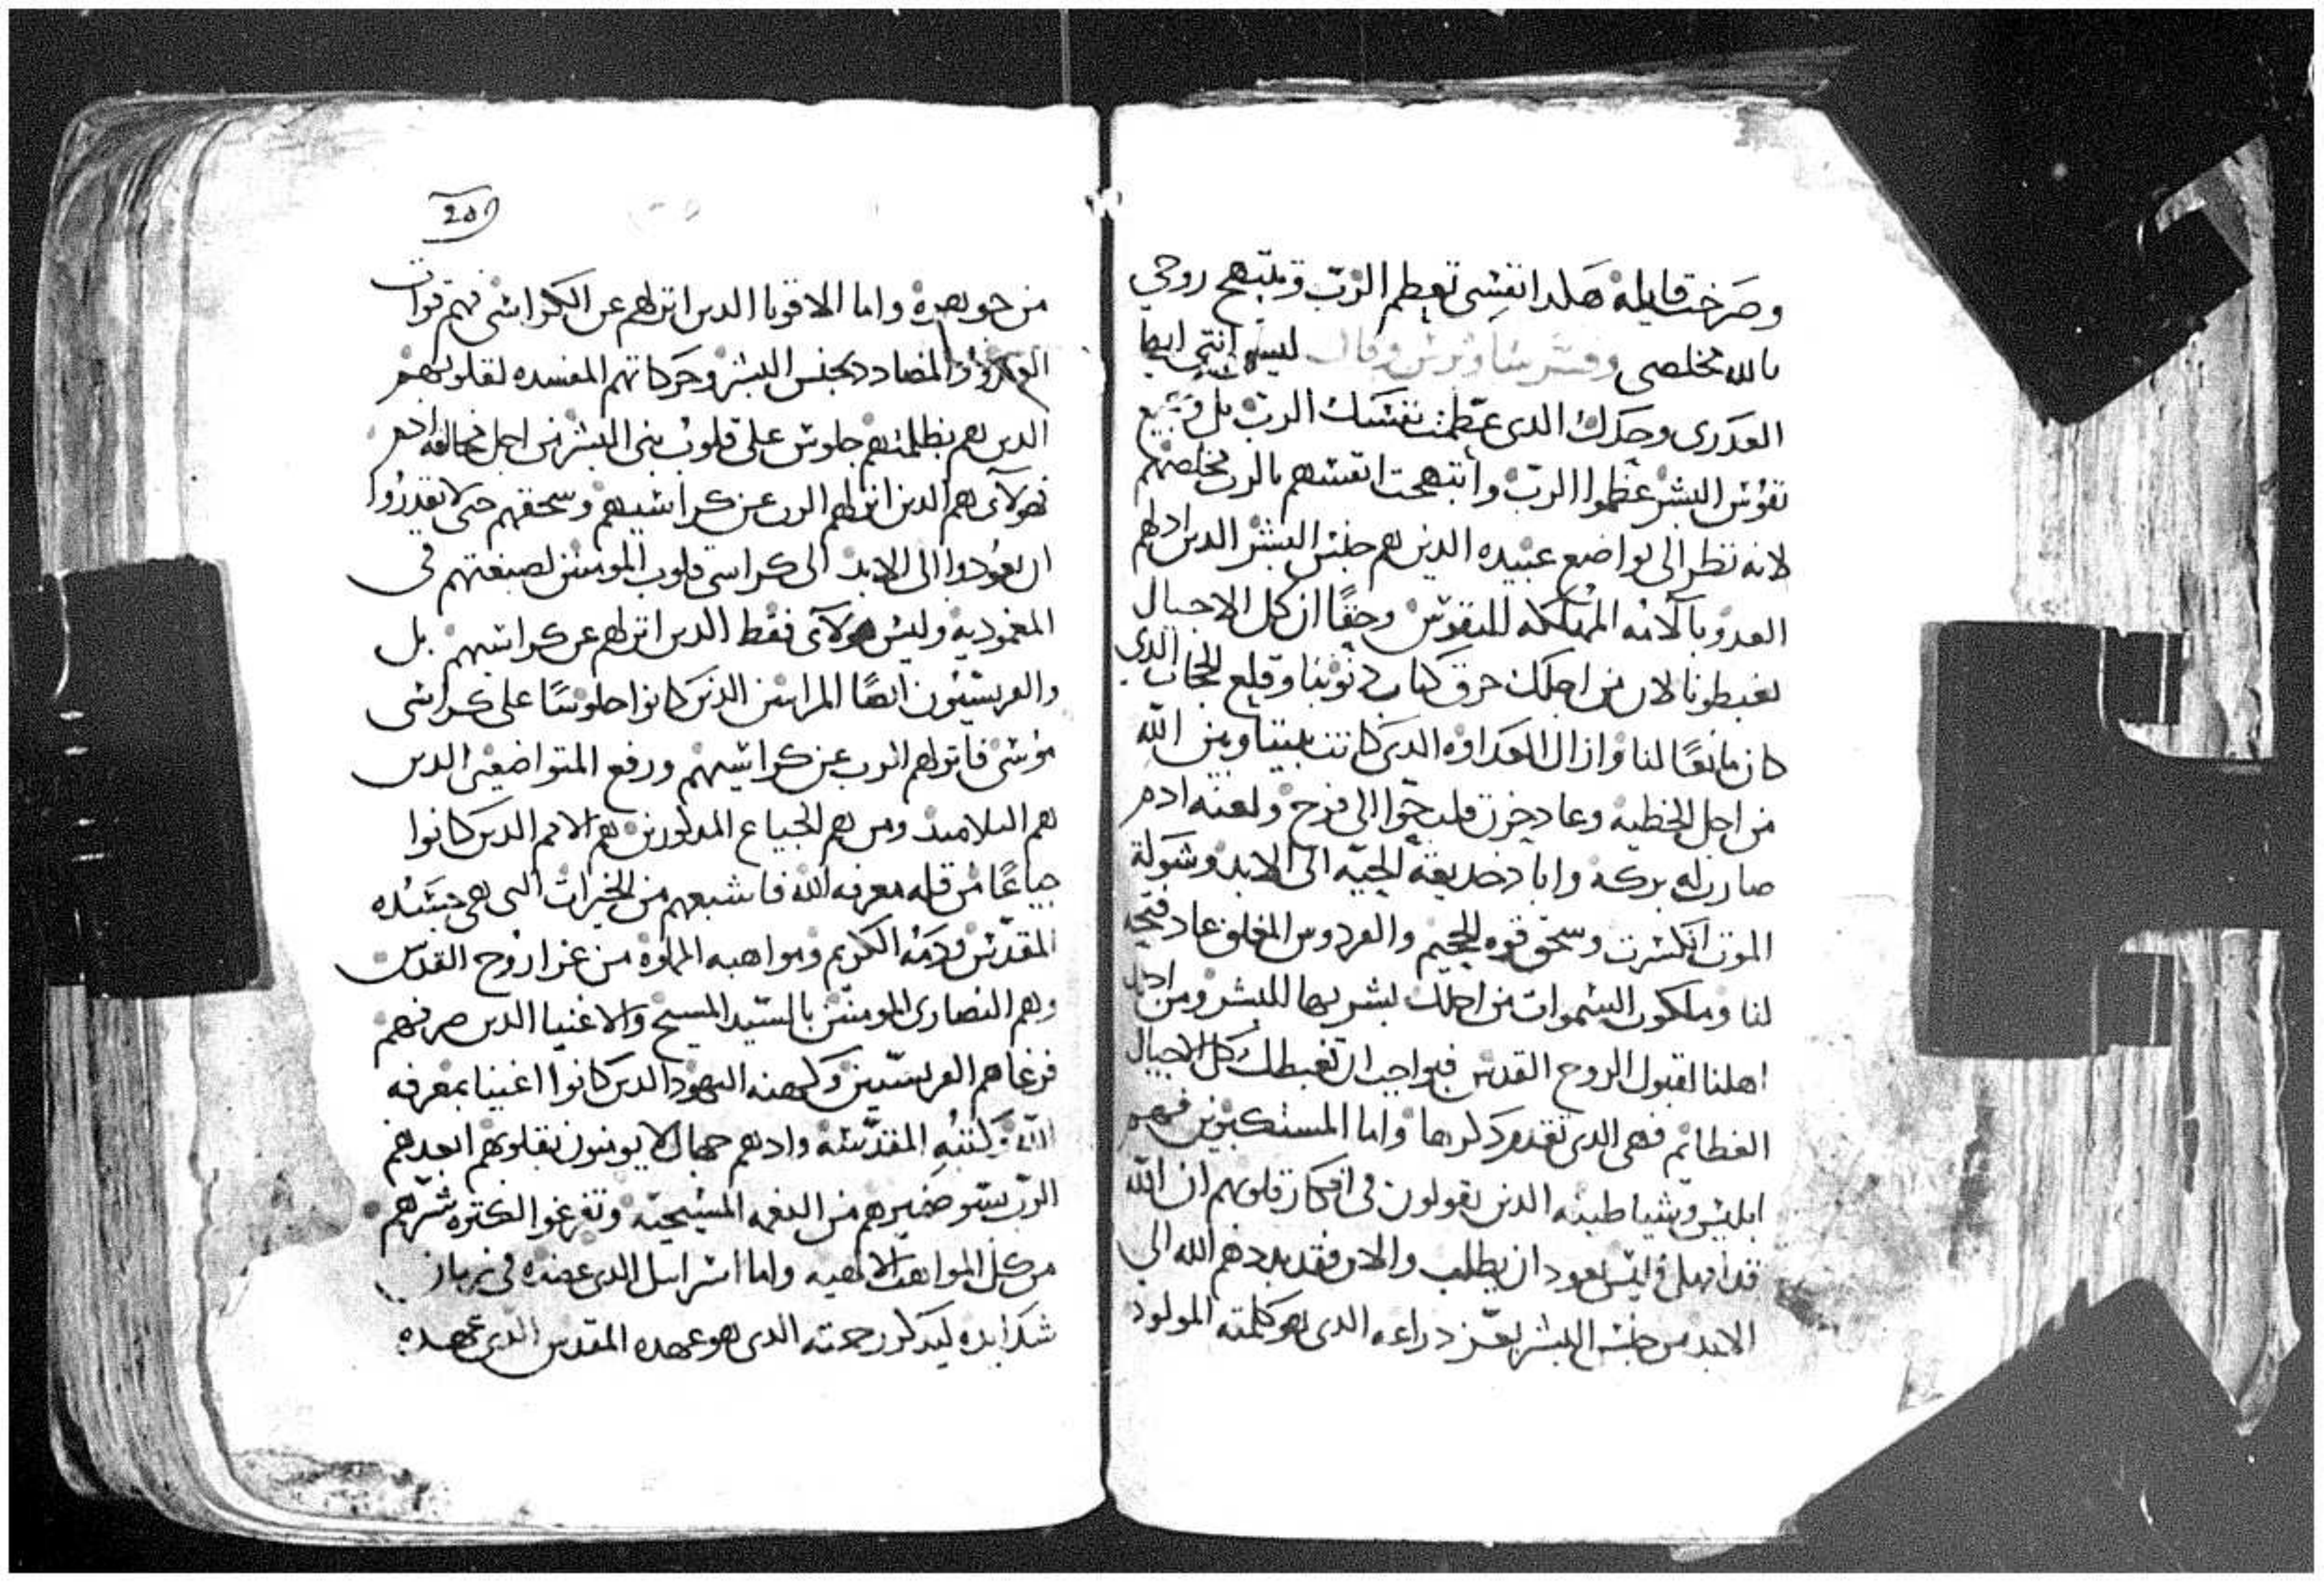 وصرخت قايله هكدا نفسى تعظم الرب وتبتهج روحي
بالله مخلصى وفسر ساويرس وقال ليس انتى ايها
العدرى وحدك الدى عظمت نفسك الرب بل وجميع
نفوس البشر عظموا الرب وابتهجت انفسهم بالرب مخلصهم
لانه نظر الى تواضع عبيده الدين هم جنس البشر الدين ادلهم
العدو بآلامه المهلكه للنفوس وحقًا ان كل الاجيال
تغبطونا لان من اجلك خرق كتاب دنوبنا وقلع الحجاب الدي
كان مانعًا لنا وازال العداوه الدى كانت بيننا وبين الله
من اجل الخطيه وعاد حزن قلب حوا الى فرح ولعنه ادم
صارت له بركه واباد خديعة الحيه الى الابد وشوكة
الموت انكسرت وسحق قوه الجحيم والفردوس المغلق عاد فتحه
لنا وملكوت السموات من اجلك بشر بها للبشر ومن اجلك
اهلنا لقبول الروح القدس فبواجب ان تغبطك كل الاجيال
العظايم فهى الدى تقدم دكرها واما المستكبرين فهم
ابليس وشياطينه الدين يقولون فى افكار قلوبهم ان الله
قد اهمل وليس يعود ان يطلب والان فقد بددهم الله الى
الابد من جنس البشر بعز دراعه الدى هو كلمته المولود
من جوهره واما الاقويا الدين انزلهم عن الكراسى فهم قوات
العدو المضادد لجنس البشر وحركاتهم المفسده لقلوبهم
الدين هم بظلمتهم جلوس على قلوب بنى البشر من اجل مخالفه ادم
فهولآى هم الدين انزلهم الرب عن كراسيهم وسحقهم حتى لا يقدروا
ان يعودوا الى الابد الى كراسى قلوب المومنين لصبغتهم فى
المعموديه وليس هولآى فقط الدين انزلهم عن كراسيهم بل
والفريسيون ايضًا المرايين الدين كانوا جلوسًا على كراسى
موسى فانزلهم الرب عن كراسيهم ورفع المتواضعين الدين
هم التلاميد ومن هم الجياع المدكورين هم الامم الدين كانوا
جياعًا من قله معرفه الله فاشبعهم من الخيرات التى هى جسده
المقدس ودمه الكريم ومواهبه المملوه من غزا روح القدس
وهم النصارى المومنين بالسيد المسيح والاغنيا الدين صرفهم
فرغا هم الفريسيين وكهنه اليهود الدين كانوا اغنيا بمعرفه
الله وكتبه المقدسه واد هم جهال لا يومنون بقلوبهم ابعدهم
الرب بسو ضميرهم من النعمه المسيحيه وتفرغوا لكتره شرهم
من كل المواهب الالاهيه واما اسراييل الدى عضده فى زمان
شدايده ليدكر رحمته الدى هو عهده المقدس الدى عهده